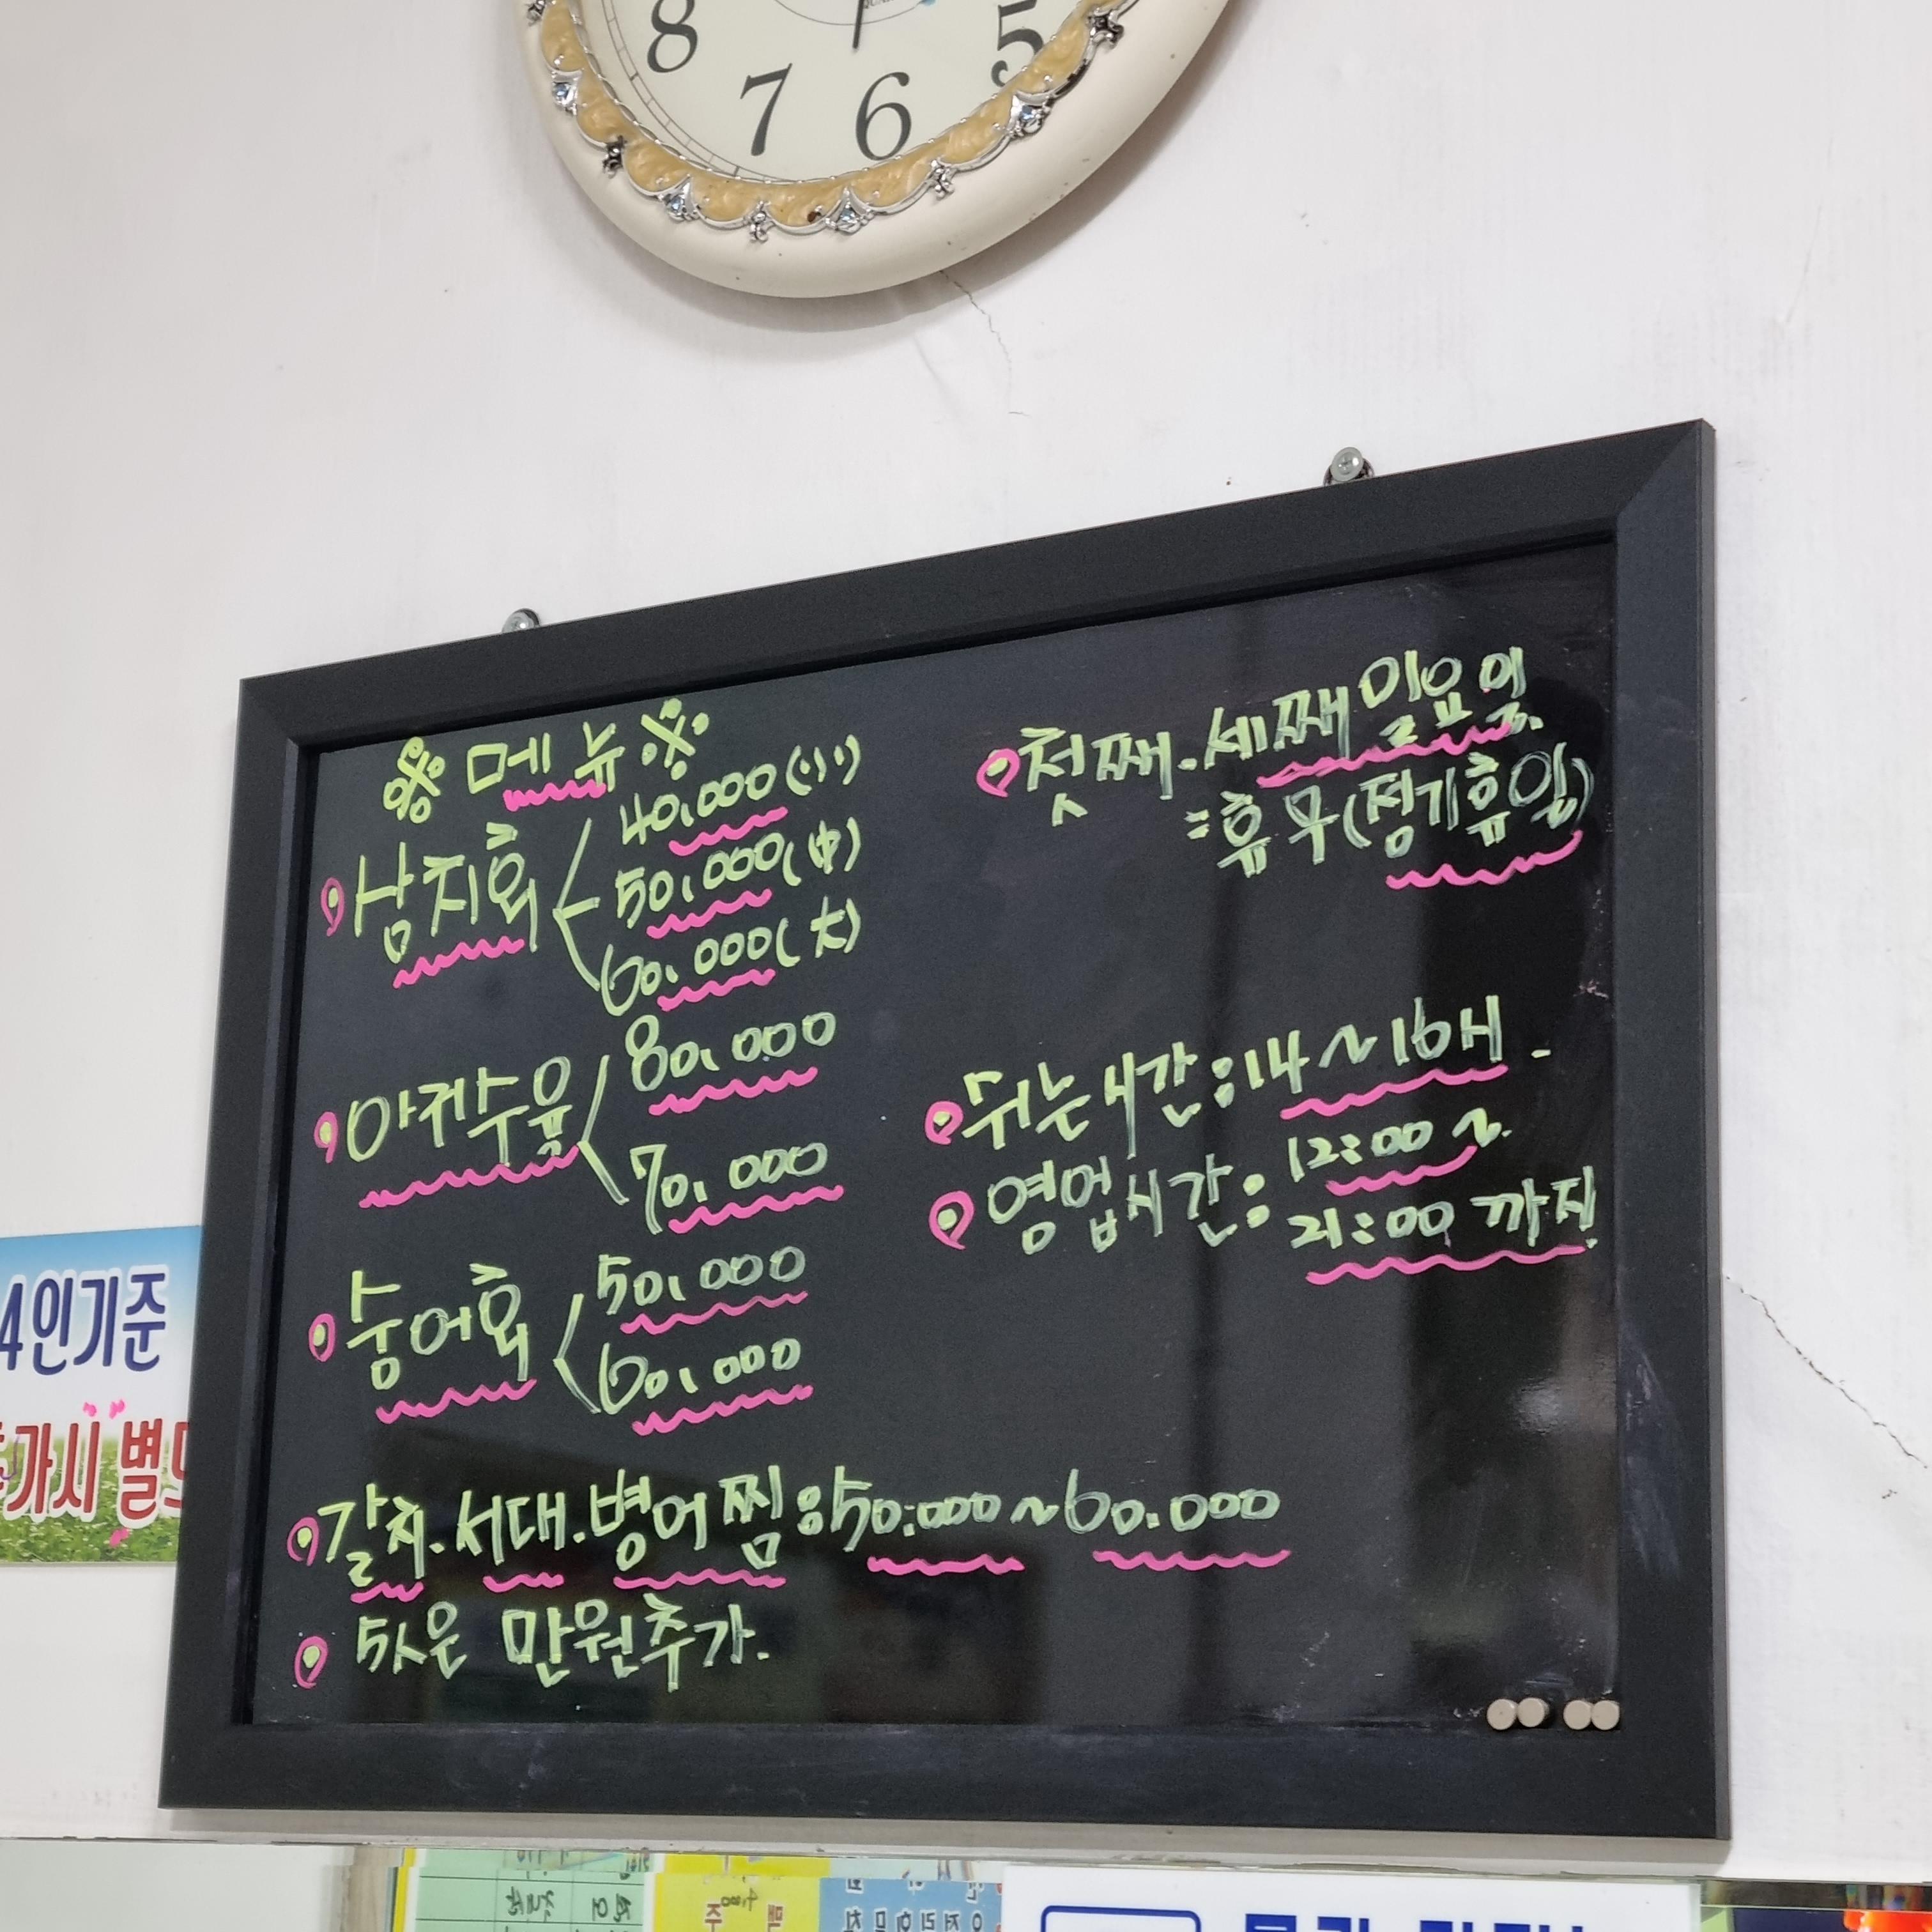 8 7 6 5
※ 메뉴 ※
낭지회 40,000(小)
50,000(中)
60,000(大)
아귀수육 80,000
70,000
숭어회 50,000
60,000
갈치.서대.병어찜:50,000~60.000
5人은 만원추가.
첫째.세째 일요일
=휴무(정기휴일)
쉬는시간:14~16시.
영업시간: 12:00~
21:00 까지.
4인기준
가시 별